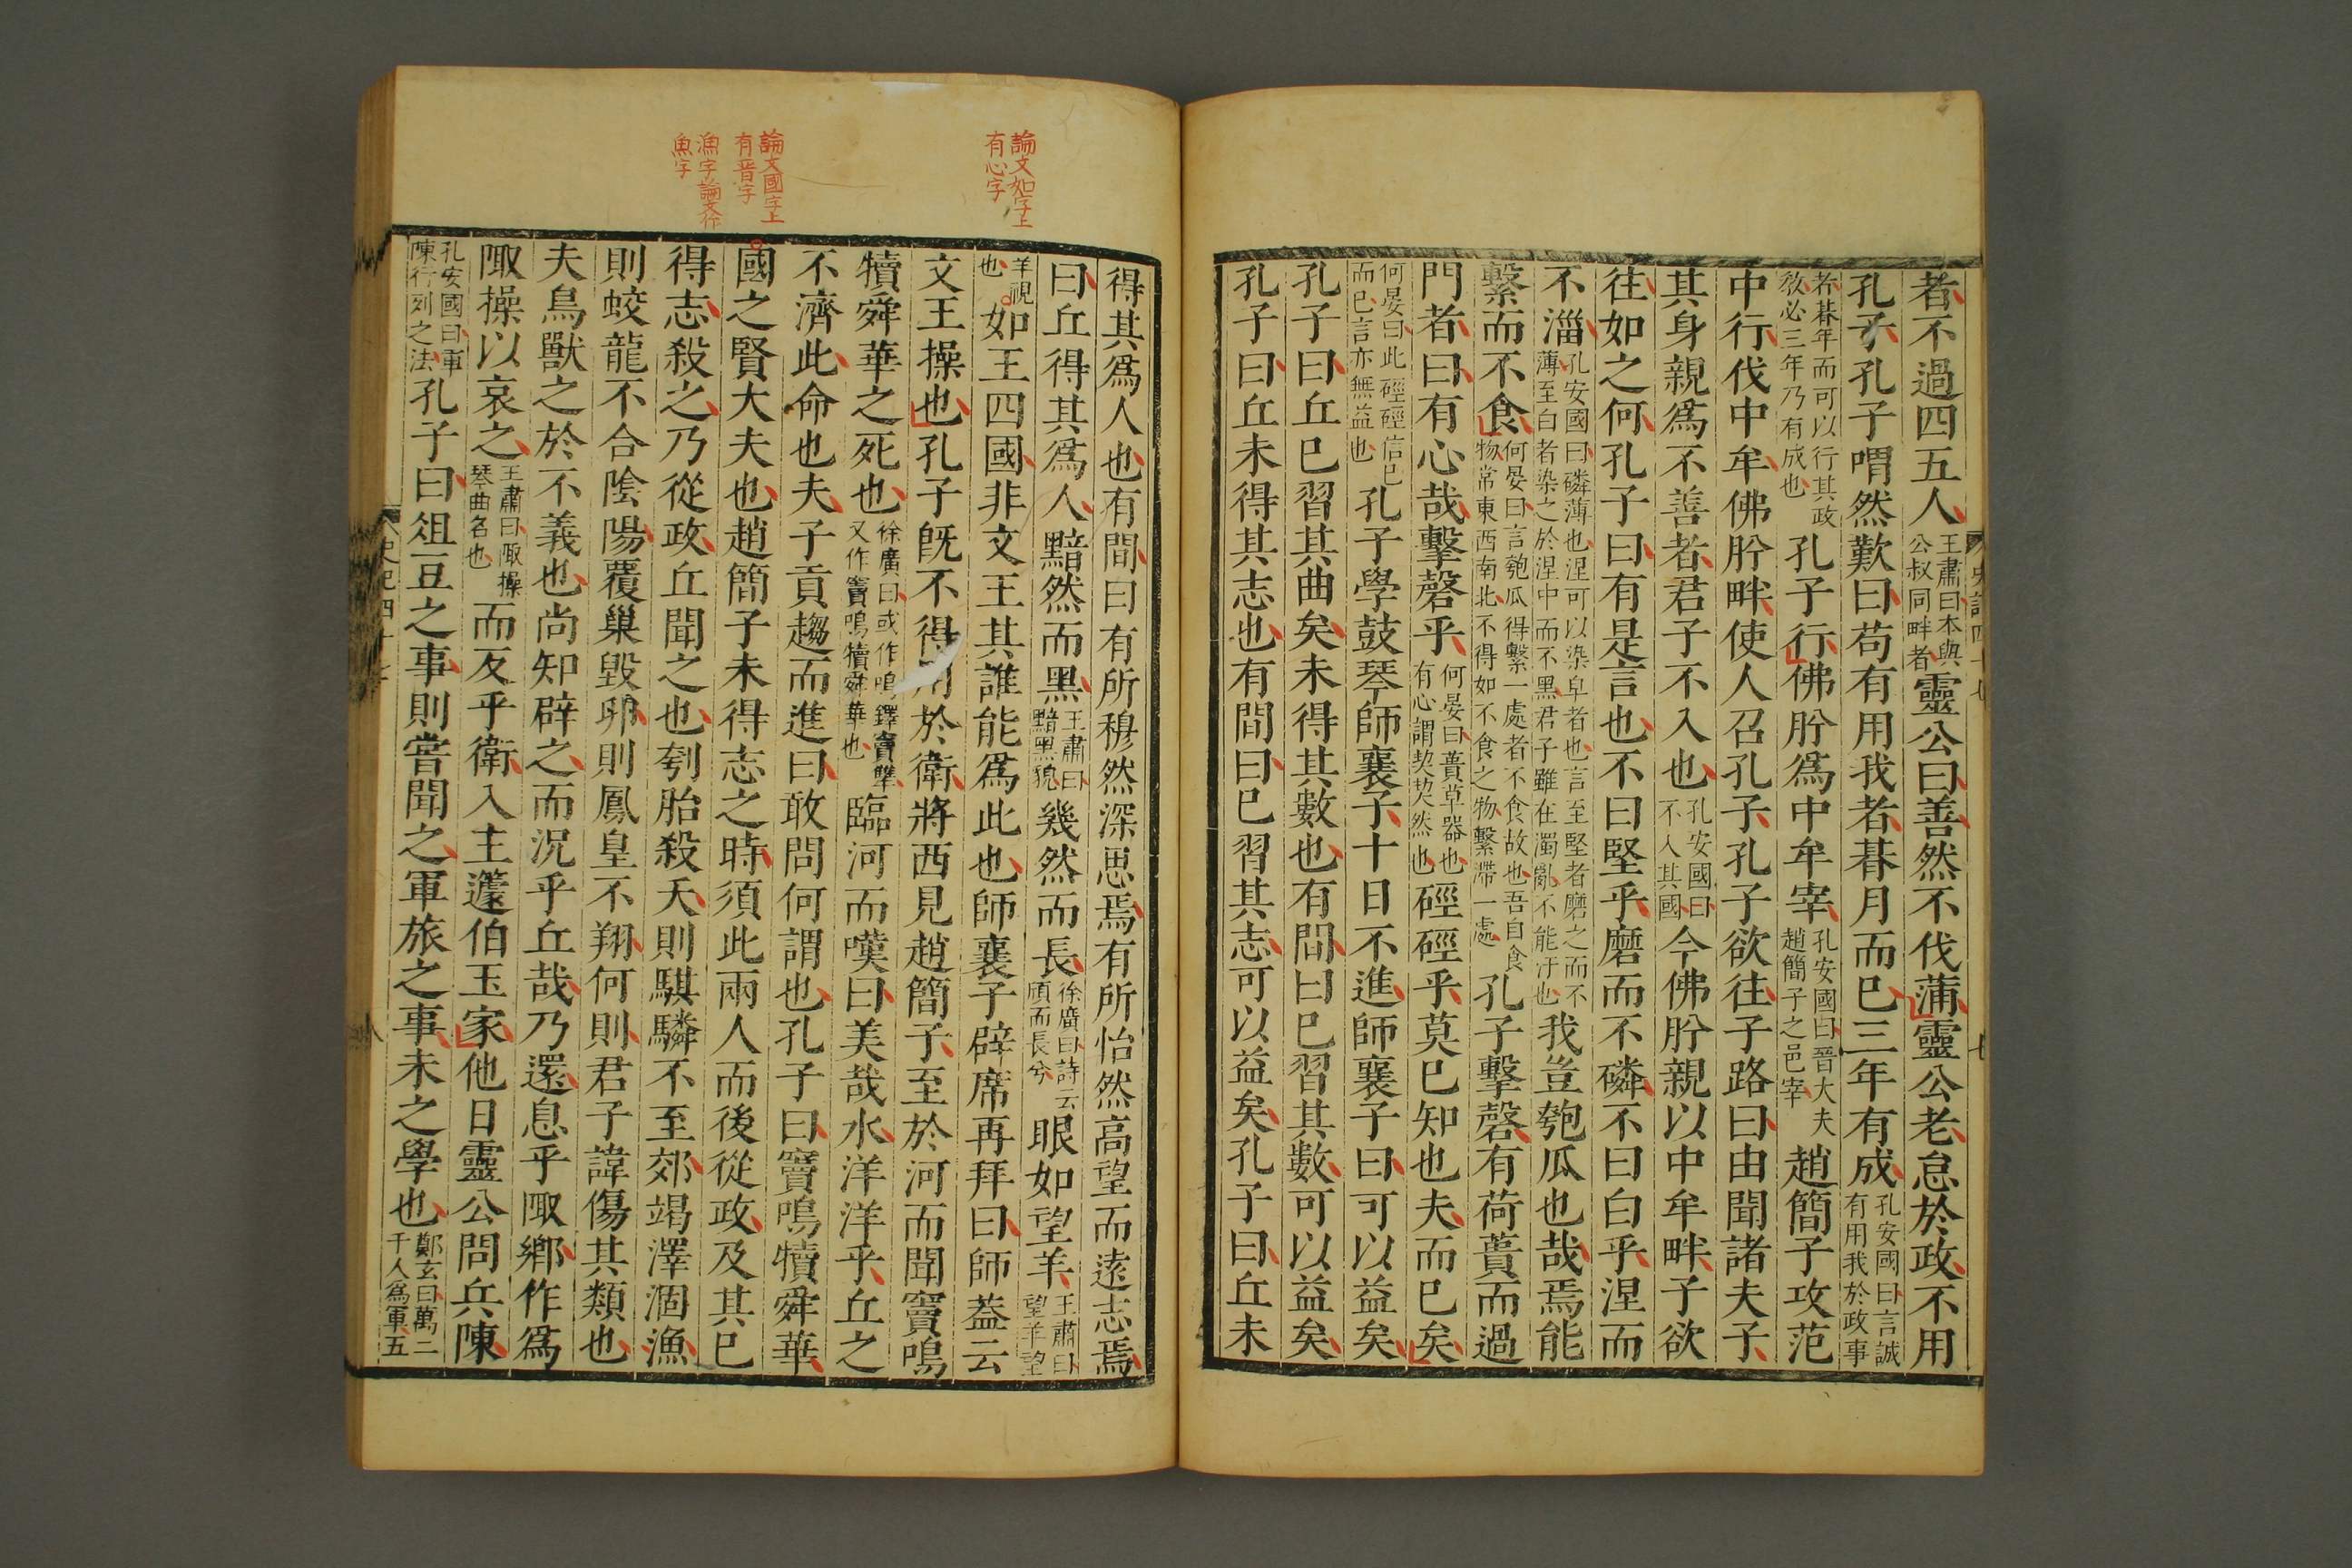 者不過四五人王肅曰本與公叔同畔者靈公曰善然不伐蒲靈公老怠於政不用
孔子孔子喟然歎曰苟有用我者朞月而已三年有成孔安國曰言誠有用我於政事
者朞年而可以行其政教必三年乃有成也孔子行佛肸爲中牟宰孔安國曰晉大夫趙簡子之邑宰趙簡子攻范
中行伐中牟佛肸畔使人召孔子孔子欲往子路曰由聞諸夫子
其身親爲不善者君子不入也孔安國曰不入其國今佛肸親以中牟畔子欲
往如之何孔子曰有是言也不曰堅乎磨而不磷不曰白乎涅而
不淄孔安國曰磷薄也涅可以染皁者也言至堅者磨之而不薄至白者染之於涅中而不黑君子雖在濁亂不能汙也我豈匏瓜也哉焉能
繫而不食何晏曰言匏瓜得繫一處者不食故也吾自食物常東西南北不得如不食之物繫滯一處孔子擊磬有荷蕢而過
門者曰有心哉擊磬乎何晏曰蕢草器也有心謂契契然也硜硜乎莫己知也夫而已矣
何晏曰此硜硜信己而已言亦無益也孔子學鼓琴師襄子十日不進師襄子曰可以益矣
孔子曰丘已習其曲矣未得其數也有間曰已習其數可以益矣
孔子曰丘未得其志也有間曰已習其志可以益矣孔子曰丘未
史記四十七
七
論文如字上
有心字
論文國字上
有晉字
漁字論文作
魚字
得其爲人也有間曰有所穆然深思焉有所怡然高望而遠志焉
曰丘得其爲人黯然而黑王肅曰黯黑貌幾然而長徐廣曰詩云頎而長兮眼如望羊王肅曰望羊望
羊視也如王四國非文王其誰能爲此也師襄子辟席再拜曰師蓋云
文王操也孔子旣不得用於衛將西見趙簡子至於河而聞竇鳴
犢舜華之死也徐廣曰或作鳴鐸竇犨又作竇鳴犢舜華也臨河而嘆曰美哉水洋洋乎丘之
不濟此命也夫子貢趨而進曰敢問何謂也孔子曰竇鳴犢舜華
國之賢大夫也趙簡子未得志之時須此兩人而後從政及其已
得志殺之乃從政丘聞之也刳胎殺夭則騏驎不至郊竭澤涸漁
則蛟龍不合陰陽覆巢毀卵則鳳皇不翔何則君子諱傷其類也
夫鳥獸之於不義也尚知辟之而況乎丘哉乃還息乎陬鄉作爲
陬操以哀之王肅曰陬操琴曲名也而反乎衛入主蘧伯玉家他日靈公問兵陳
孔安國曰軍陳行列之法孔子曰俎豆之事則嘗聞之軍旅之事未之學也鄭玄曰萬二千人爲軍五
史記四十七
八